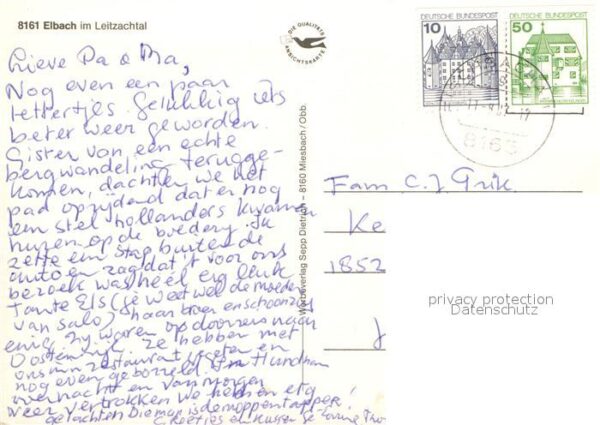 8161 Elbach im Leitzachtal
DIE QUALITÄTS
ANSICHTSKARTE
DEUTSCHE BUNDESPOST
10
DEUTSCHE BUNDESPOST
50
8163
Lieve Pa & Ma,
Nog even een paar
lettertjes. Gelukkig iets
beter weer geworden.
Gister van een echte
bergwandeling terugge-
komen, dachten we het
pad oprijdend dat er nog
een stel hollanders kwamen
huren op de boerderij. Ik
zette een stap buiten de
auto en zag dat 't voor ons
bezoek was heel erg leuk
Tante Els (je weet wel de moeder
van Salo) haar broer en schoonzus
enig zij waren op doorreis naar
Oostenrijk ze hebben met
ons in restaurant gegeten en
nog even geborreld in Hundham
overnacht en vanmorgen
weer vertrokken we hebben erg
gelachten Die man is de moppentapper!
Groetjes en kussen je
Werbeverlag Sepp Dietrich – 8160 Miesbach / Obb.
Fam C. J. Grik
Ke
1852
privacy protection
Datenschutz